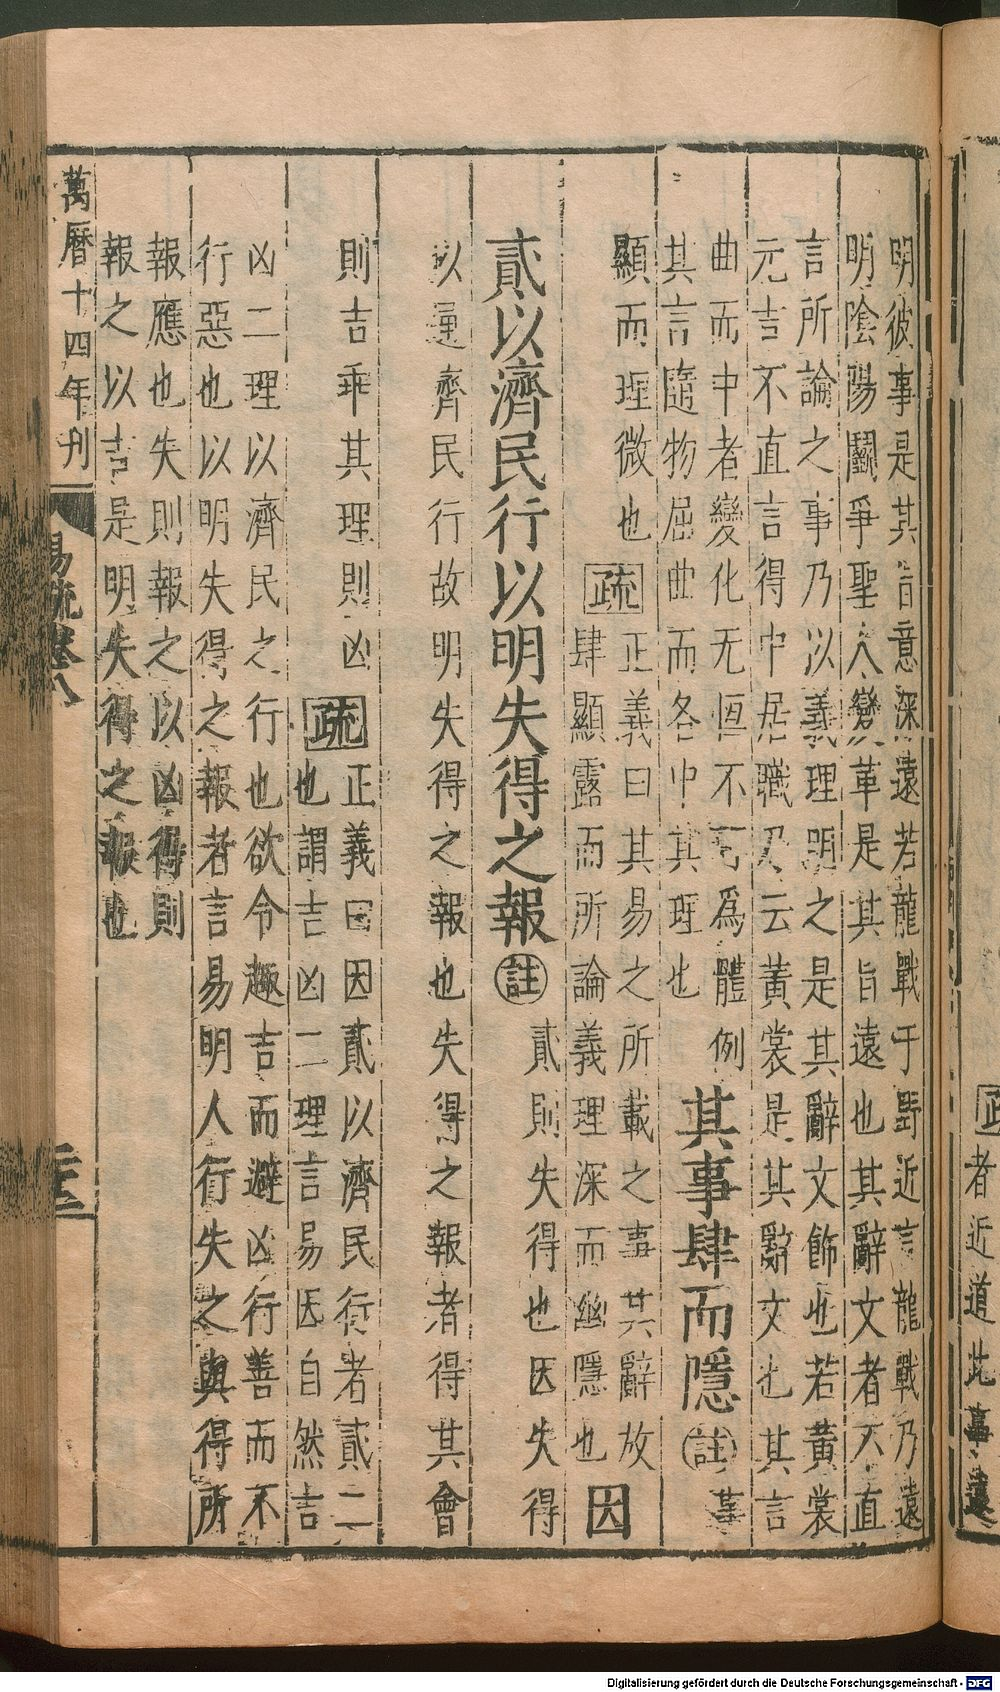 者近道此事遠
明彼事是其旨意深遠若龍戰于野近言龍戰乃遠
明陰陽鬭爭聖人變革是其旨遠也其辭文者不直
言所論之事乃以義理明之是其辭文飾也若黃裳
元吉不直言得中居職乃云黃裳是其辭文也其言
曲而中者變化无恒不可爲體例
其言隨物屈曲而各中其理也
其事肆而隱
註
事
顯而理微也
疏
正義曰其易之所載之事其辭放
肆顯露而所論義理深而幽隱也
因
貳以濟民行以明失得之報
註
貳則失得也因失得
以通濟民行故明失得之報也失得之報者得其會
則吉乖其理則凶
疏
正義曰因貳以濟民行者貳二
也謂吉凶二理言易因自然吉
凶二理以濟民之行也欲令趣吉而避凶行善而不
行惡也以明失得之報者言易明人行失之與得所
報應也失則報之以凶得則
報之以吉是明失得之報也
萬曆十四年刊
易疏卷八
Digitalisierung gefördert durch die Deutsche Forschungsgemeinschaft - DFG